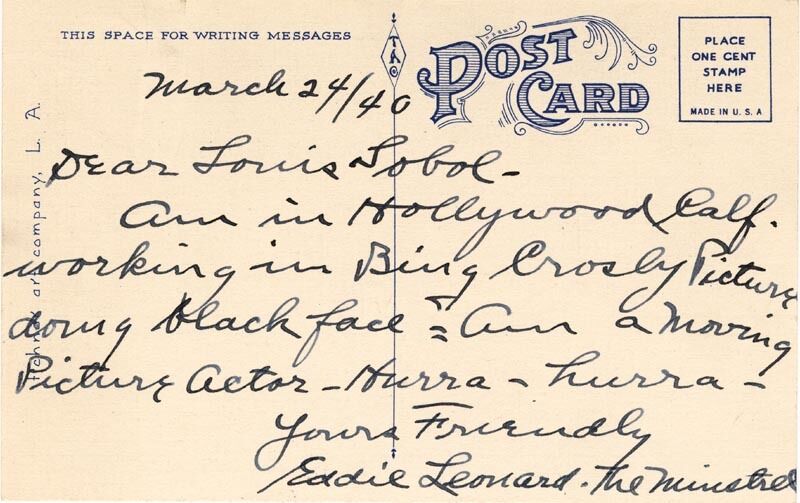 THIS SPACE FOR WRITING MESSAGES
POST CARD
PLACE
ONE CENT
STAMP
HERE
MADE IN U. S. A
March 24/40
Dear Louis Sobol-
Am in Hollywood Calf.
working in Bing Crosby Picture
doing black face = Am a Moving
Picture Actor - Hurra - hurra -
Yours Friendly
Eddie Leonard. The Minstrel
art company, L. A.